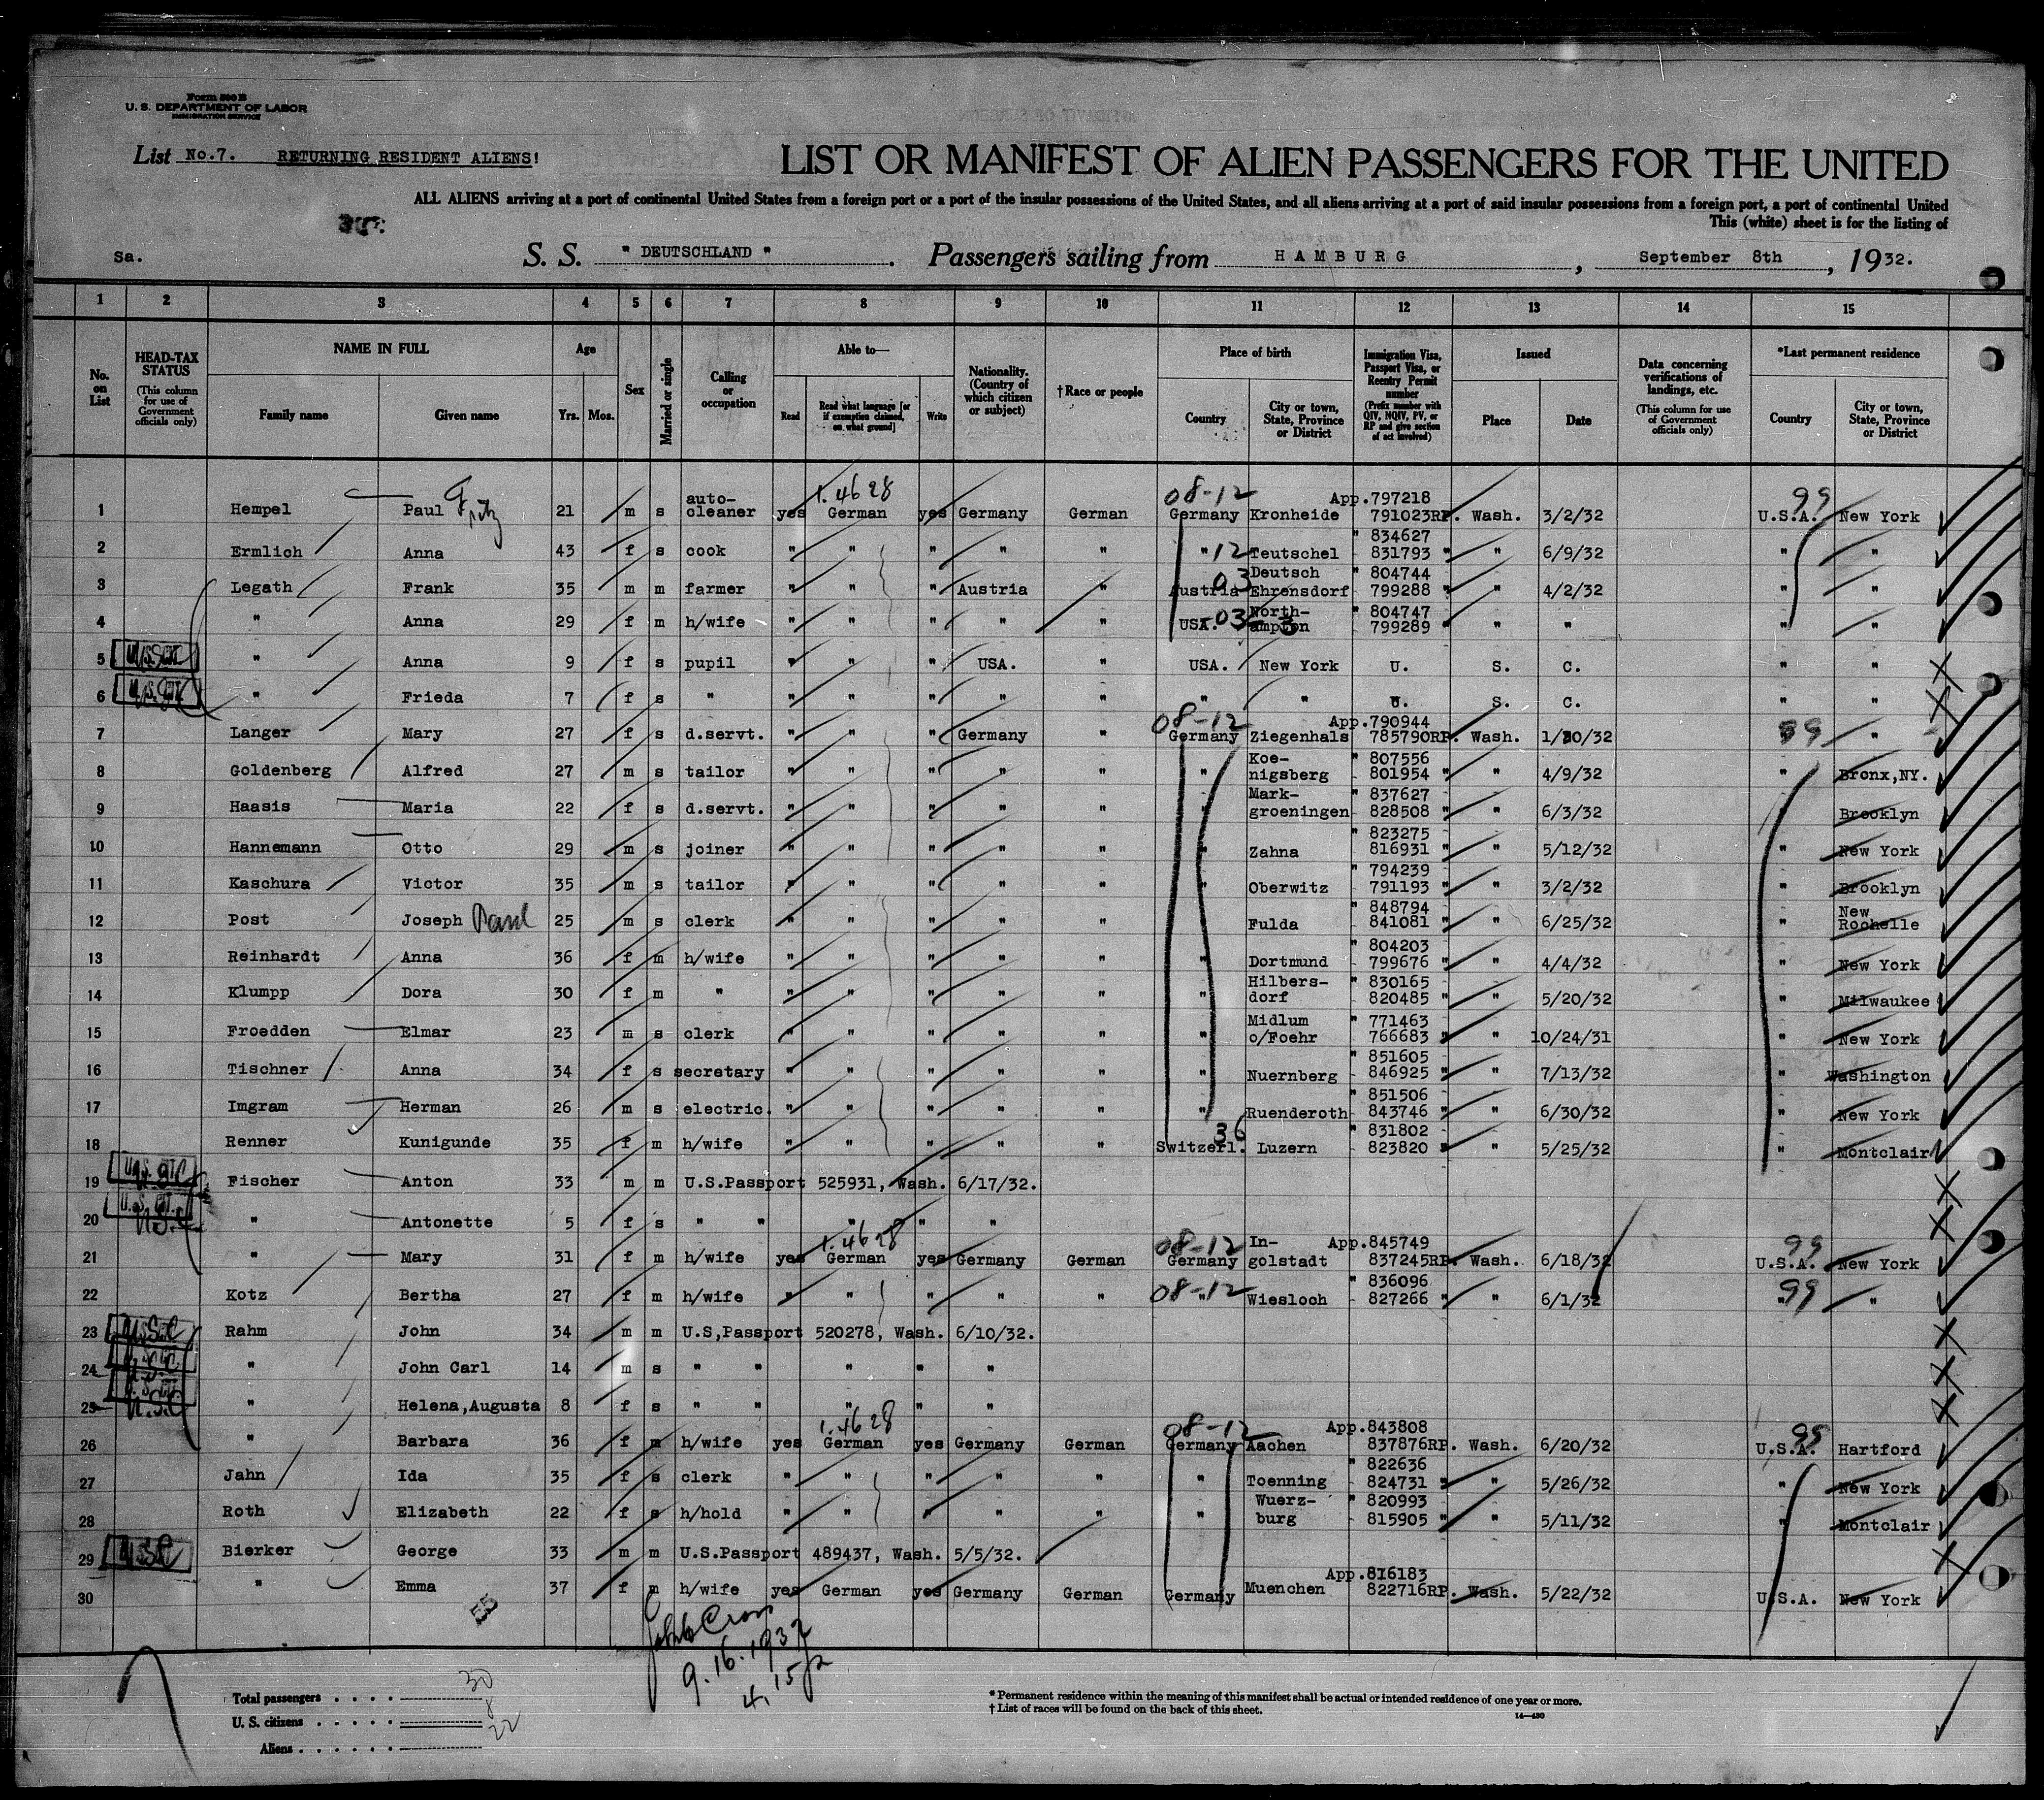 Form 500 B
U. S. DEPARTMENT OF LABOR
IMMIGRATION SERVICE
List No.7. RETURNING RESIDENT ALIENS!
LIST OR MANIFEST OF ALIEN PASSENGERS FOR THE UNITED
ALL ALIENS arriving at a port of continental United States from a foreign port or a port of the insular possessions of the United States, and all aliens arriving at a port of said insular possessions from a foreign port, a port of continental United
This (white) sheet is for the listing of
Sa. S. S. " DEUTSCHLAND " . Passengers sailing from HAMBURG , September 8th , 19 32.
1 2 3 4 5 6 7 8 9 10 11 12 13 14 15
No. on List HEAD-TAX STATUS (This column for use of Government officials only) NAME IN FULL Family name Given name Age Yrs. Mos. Sex Married or single Calling or occupation Able to— Read Read what language [or if exemption claimed, on what ground] Write Nationality. (Country of which citizen or subject) † Race or people Place of birth Country City or town, State, Province or District Immigration Visa, Passport Visa, or Reentry Permit number (Prefix number with QIV, NQIV, PV, or RP and give section of act involved) Issued Place Date Data concerning verifications of landings, etc. (This column for use of Government officials only) *Last permanent residence Country City or town, State, Province or District
1.4628 08-12 99
1 Hempel Paul Fritz 21 m s auto-cleaner yes German yes Germany German Germany Kronheide App.797218 791023RP. Wash. 3/2/32 U.S.A. New York
2 Ermlich Anna 43 f s cook " " " " " " 12 Teutschel " 834627 831793 " " 6/9/32 " "
3 Legath Frank 35 m m farmer " " " Austria " Austria 03 Deutsch Ehrensdorf " 804744 799288 " " 4/2/32 " "
4 " Anna 29 f m h/wife " " " " " USA. 03 North-ampton " 804747 799289 " " " " "
5 " Anna 9 f s pupil " " " USA. " USA. New York U. S. C. " "
6 " Frieda 7 f s " " " " " " " " U. S. C. " "
08-12 99
7 Langer Mary 27 f s d.servt. " " " Germany " Germany Ziegenhals App.790944 785790RP. Wash. 1/30/32 " "
8 Goldenberg Alfred 27 m s tailor " " " " " " Koe-nigsberg " 807556 801954 " " 4/9/32 " Bronx,NY.
9 Haasis Maria 22 f s d.servt. " " " " " " Mark-groeningen " 837627 828508 " " 6/3/32 " Brooklyn
10 Hannemann Otto 29 m s joiner " " " " " " Zahna " 823275 816931 " " 5/12/32 " New York
11 Kaschura Victor 35 m s tailor " " " " " " Oberwitz " 794239 791193 " " 3/2/32 " Brooklyn
12 Post Joseph Paul 25 m s clerk " " " " " " Fulda " 848794 841081 " " 6/25/32 " New Rochelle
13 Reinhardt Anna 36 f m h/wife " " " " " " Dortmund " 804203 799676 " " 4/4/32 " New York
14 Klumpp Dora 30 f m " " " " " " " Hilbers-dorf " 830165 820485 " " 5/20/32 " Milwaukee
15 Froedden Elmar 23 m s clerk " " " " " " Midlum o/Foehr " 771463 766683 " " 10/24/31 " New York
16 Tischner Anna 34 f s secretary " " " " " " Nuernberg " 851605 846925 " " 7/13/32 " Washington
17 Imgram Herman 26 m s electric. " " " " " " Ruenderoth " 851506 843746 " " 6/30/32 " New York
18 Renner Kunigunde 35 f m h/wife " " " " " Switzerl. 36 Luzern " 831802 823820 " " 5/25/32 " Montclair
19 Fischer Anton 33 m m U.S.Passport 525931, Wash. 6/17/32.
20 " Antonette 5 f s " " " " "
1.4628 08-12 99
21 " Mary 31 f m h/wife yes German yes Germany German Germany In-golstadt App.845749 837245RP. Wash. 6/18/32 U.S.A. New York
22 Kotz Bertha 27 f m h/wife " " " " " 08-12 " Wiesloch " 836096 827266 " " 6/1/32 " 99 "
23 U.S.C Rahm John 34 m m U.S,Passport 520278, Wash. 6/10/32.
24 " John Carl 14 m s " " " " "
25 U.S.C " Helena,Augusta 8 f s " " " " "
1.4628 08-12 99
26 " Barbara 36 f m h/wife yes German yes Germany German Germany Aachen App.843808 837876RP. Wash. 6/20/32 U.S.A. Hartford
27 Jahn Ida 35 f s clerk " " " " " " Toenning " 822636 824731 " " 5/26/32 " New York
28 Roth Elizabeth 22 f s h/hold " " " " " " Wuerz-burg " 820993 815905 " " 5/11/32 " Montclair
29 U.S.C Bierker George 33 m m U.S.Passport 489437, Wash. 5/5/32.
30 " Emma 37 f m h/wife yes German yes Germany German Germany Muenchen App.816183 822716RP. Wash. 5/22/32 U.S.A. New York
55
9.16.1932
Total passengers . . . . 30
U. S. citizens . . . . . 8
Aliens . . . . . . 22
* Permanent residence within the meaning of this manifest shall be actual or intended residence of one year or more.
† List of races will be found on the back of this sheet.
14—430